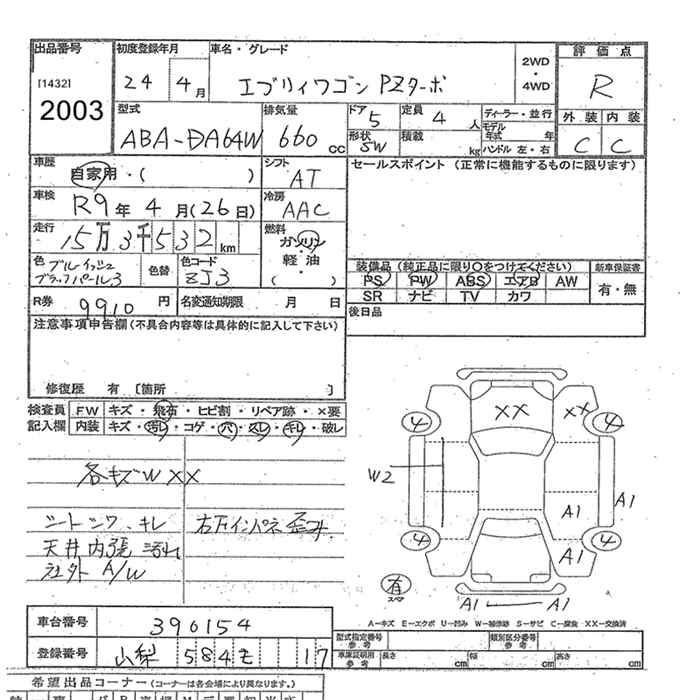 出品番号 初度登録年月 車名・グレード 2WD・4WD 評価点
[1432] 2003 24 4月 エブリィワゴン PZターボ R
型式 排気量 ドア 定員 ディーラー・並行 外装 内装
ABA-DA64W 660cc 5 4人 モデル年式 年 C C
形状 SW 積載 kg ハンドル 左・右
車歴 自家用・( ) シフト AT セールスポイント (正常に機能するものに限ります)
車検 R9年 4月(26日) 冷房 AAC
走行 15万3千532km 燃料 ガソリン・軽油 ( )
色 ブルーイッシュブラックパール3 色替 色コード ZJ3 装備品 (純正品に限り○をつけてください) 新車保証書
PS PW ABS エアB AW 有・無
R券 9910円 名変通知期限 月 日 SR ナビ TV カワ
注意事項申告欄(不具合内容等は具体的に記入して下さい) 後日品
修復歴 有 〔箇所 〕
検査員 FW キズ・飛石・ヒビ割・リペア跡・×要
記入欄 内装 キズ・汚レ・コゲ・穴・スレ・キレ・破レ
XX XX
4 4
各キズW XX
W2 A1 A1
シートシワ、キレ 右リアインパネ歪み
天井内張汚れ 4 A1 4
社外 A/W
有
A1 A1
A-キズ E-エクボ U-凹み W-補修跡 S-サビ C-腐食 XX-交換済
車台番号 390154 型式指定番号 参考 類別区分番号 参考
登録番号 山梨 584 セ 17 車庫証明用 参考 長さ cm 幅 cm 高さ cm
希望出品コーナー (コーナーは各会場により異なります。)